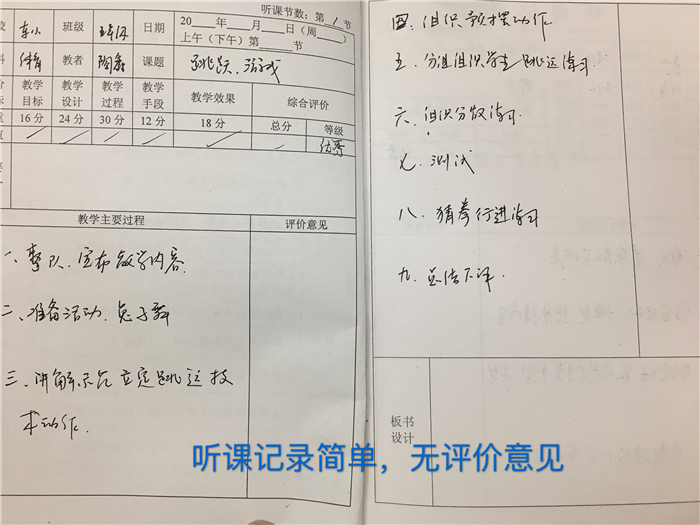 听课节数：第 1 节
校 东小 班级 日期 20 年 月 日（周 ）
上午（下午）第 节
科 体育 教者 陶鑫 课题 跳跃、游戏
教学目标 教学设计 教学过程 教学手段 教学效果 综合评价
16分 24分 30分 12分 18分 总分 等级
优秀
教学主要过程 评价意见
一、整队、宣布教学内容
二、准备活动、兔子舞
三、讲解示范立定跳远技
术动作.
四：组织预摆动作
五、分组组织学生跳远练习
六、组织分散练习.
七、测试
八、猜拳行进练习
九、总结下课.
板书
设计
听课记录简单，无评价意见